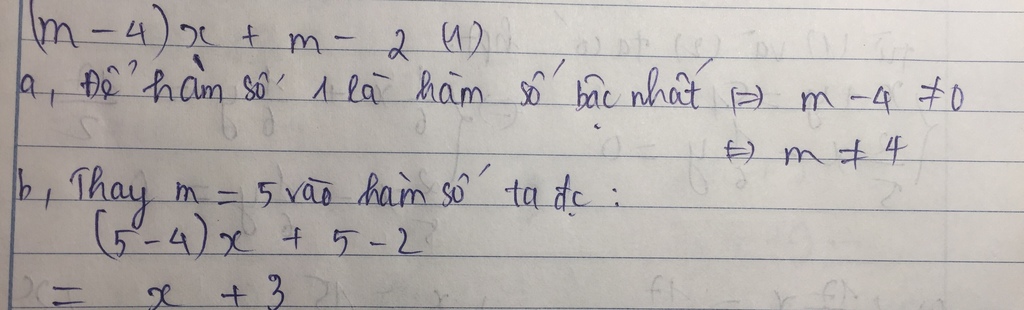 (m - 4)x + m - 2 (1)
a, Để hàm số 1 là hàm số bậc nhất (=) m - 4 ≠ 0
(=) m ≠ 4
b, Thay m = 5 vào hàm số ta đc :
(5 - 4)x + 5 - 2
= x + 3